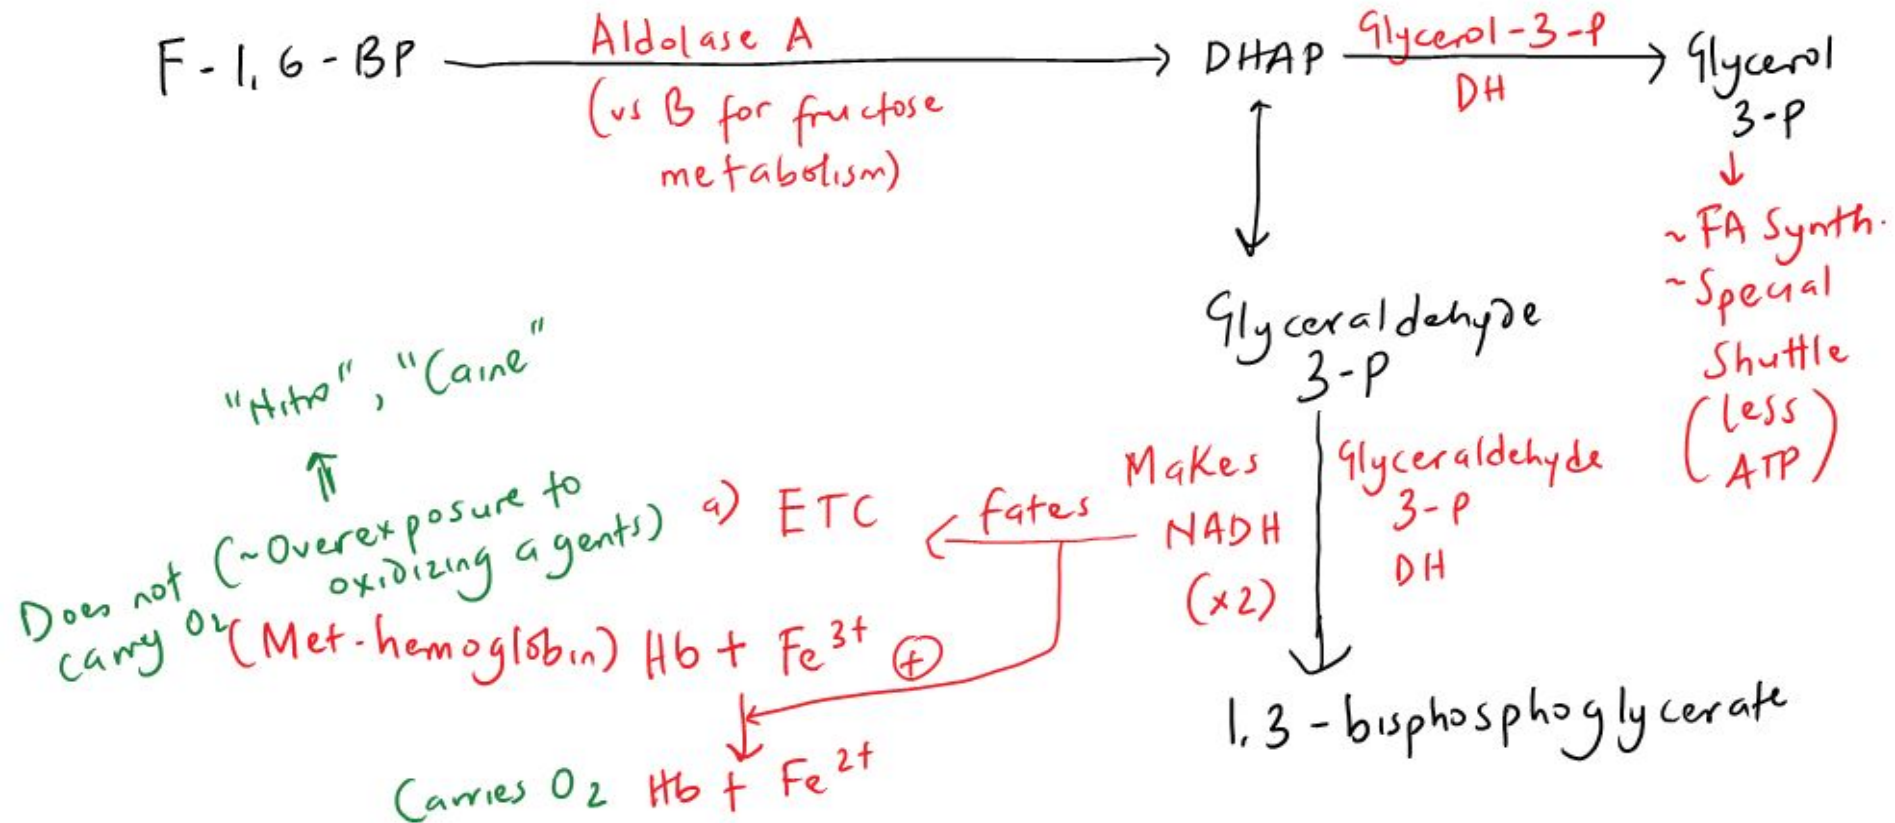 F-1,6-BP
Aldolase A
(vs B for fructose
metabolism)
DHAP
Glycerol-3-P
DH
Glycerol
3-P
~ FA Synth.
~ Special
Shuttle
(less
ATP)
Glyceraldehyde
3-P
Glyceraldehyde
3-P
DH
Makes
NADH
(x2)
fates
a) ETC
"Nitro", "Caine"
(~Overexposure to
oxidizing agents)
Does not
carry O2
(Met-hemoglobin) Hb + Fe3+
+
Carries O2 Hb + Fe2+
1,3-bisphosphoglycerate